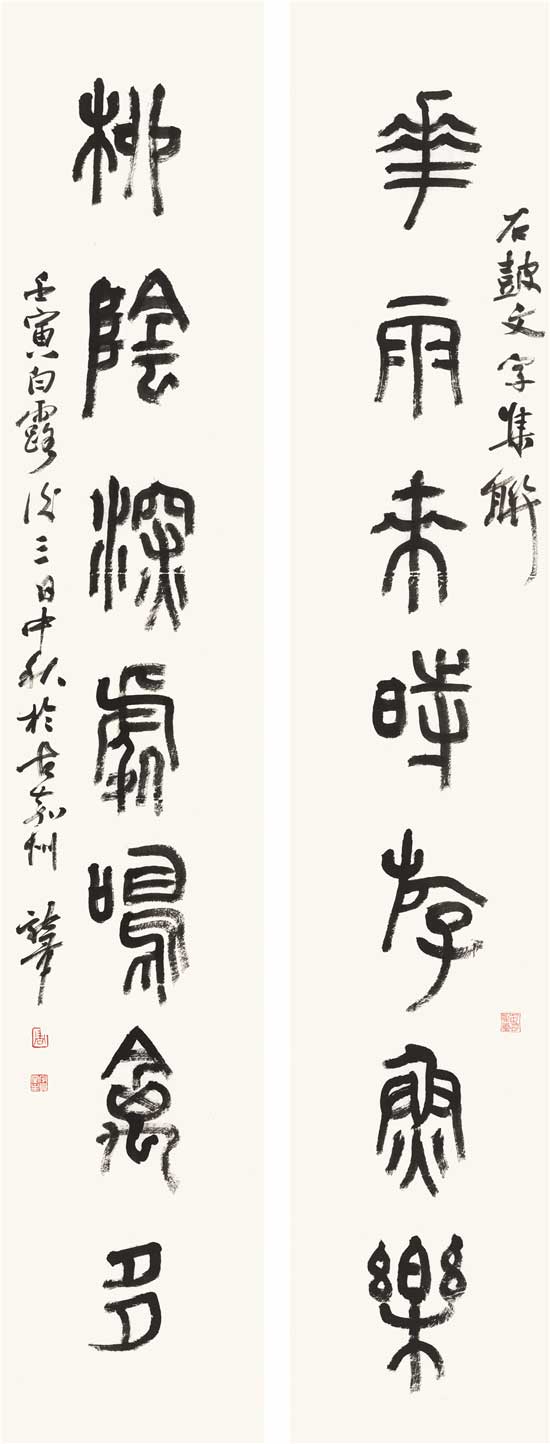 石鼓文字集聯
華雨來時斿魚樂
柳陰深處鳴禽多
壬寅白露後三日中秋於古嘉州